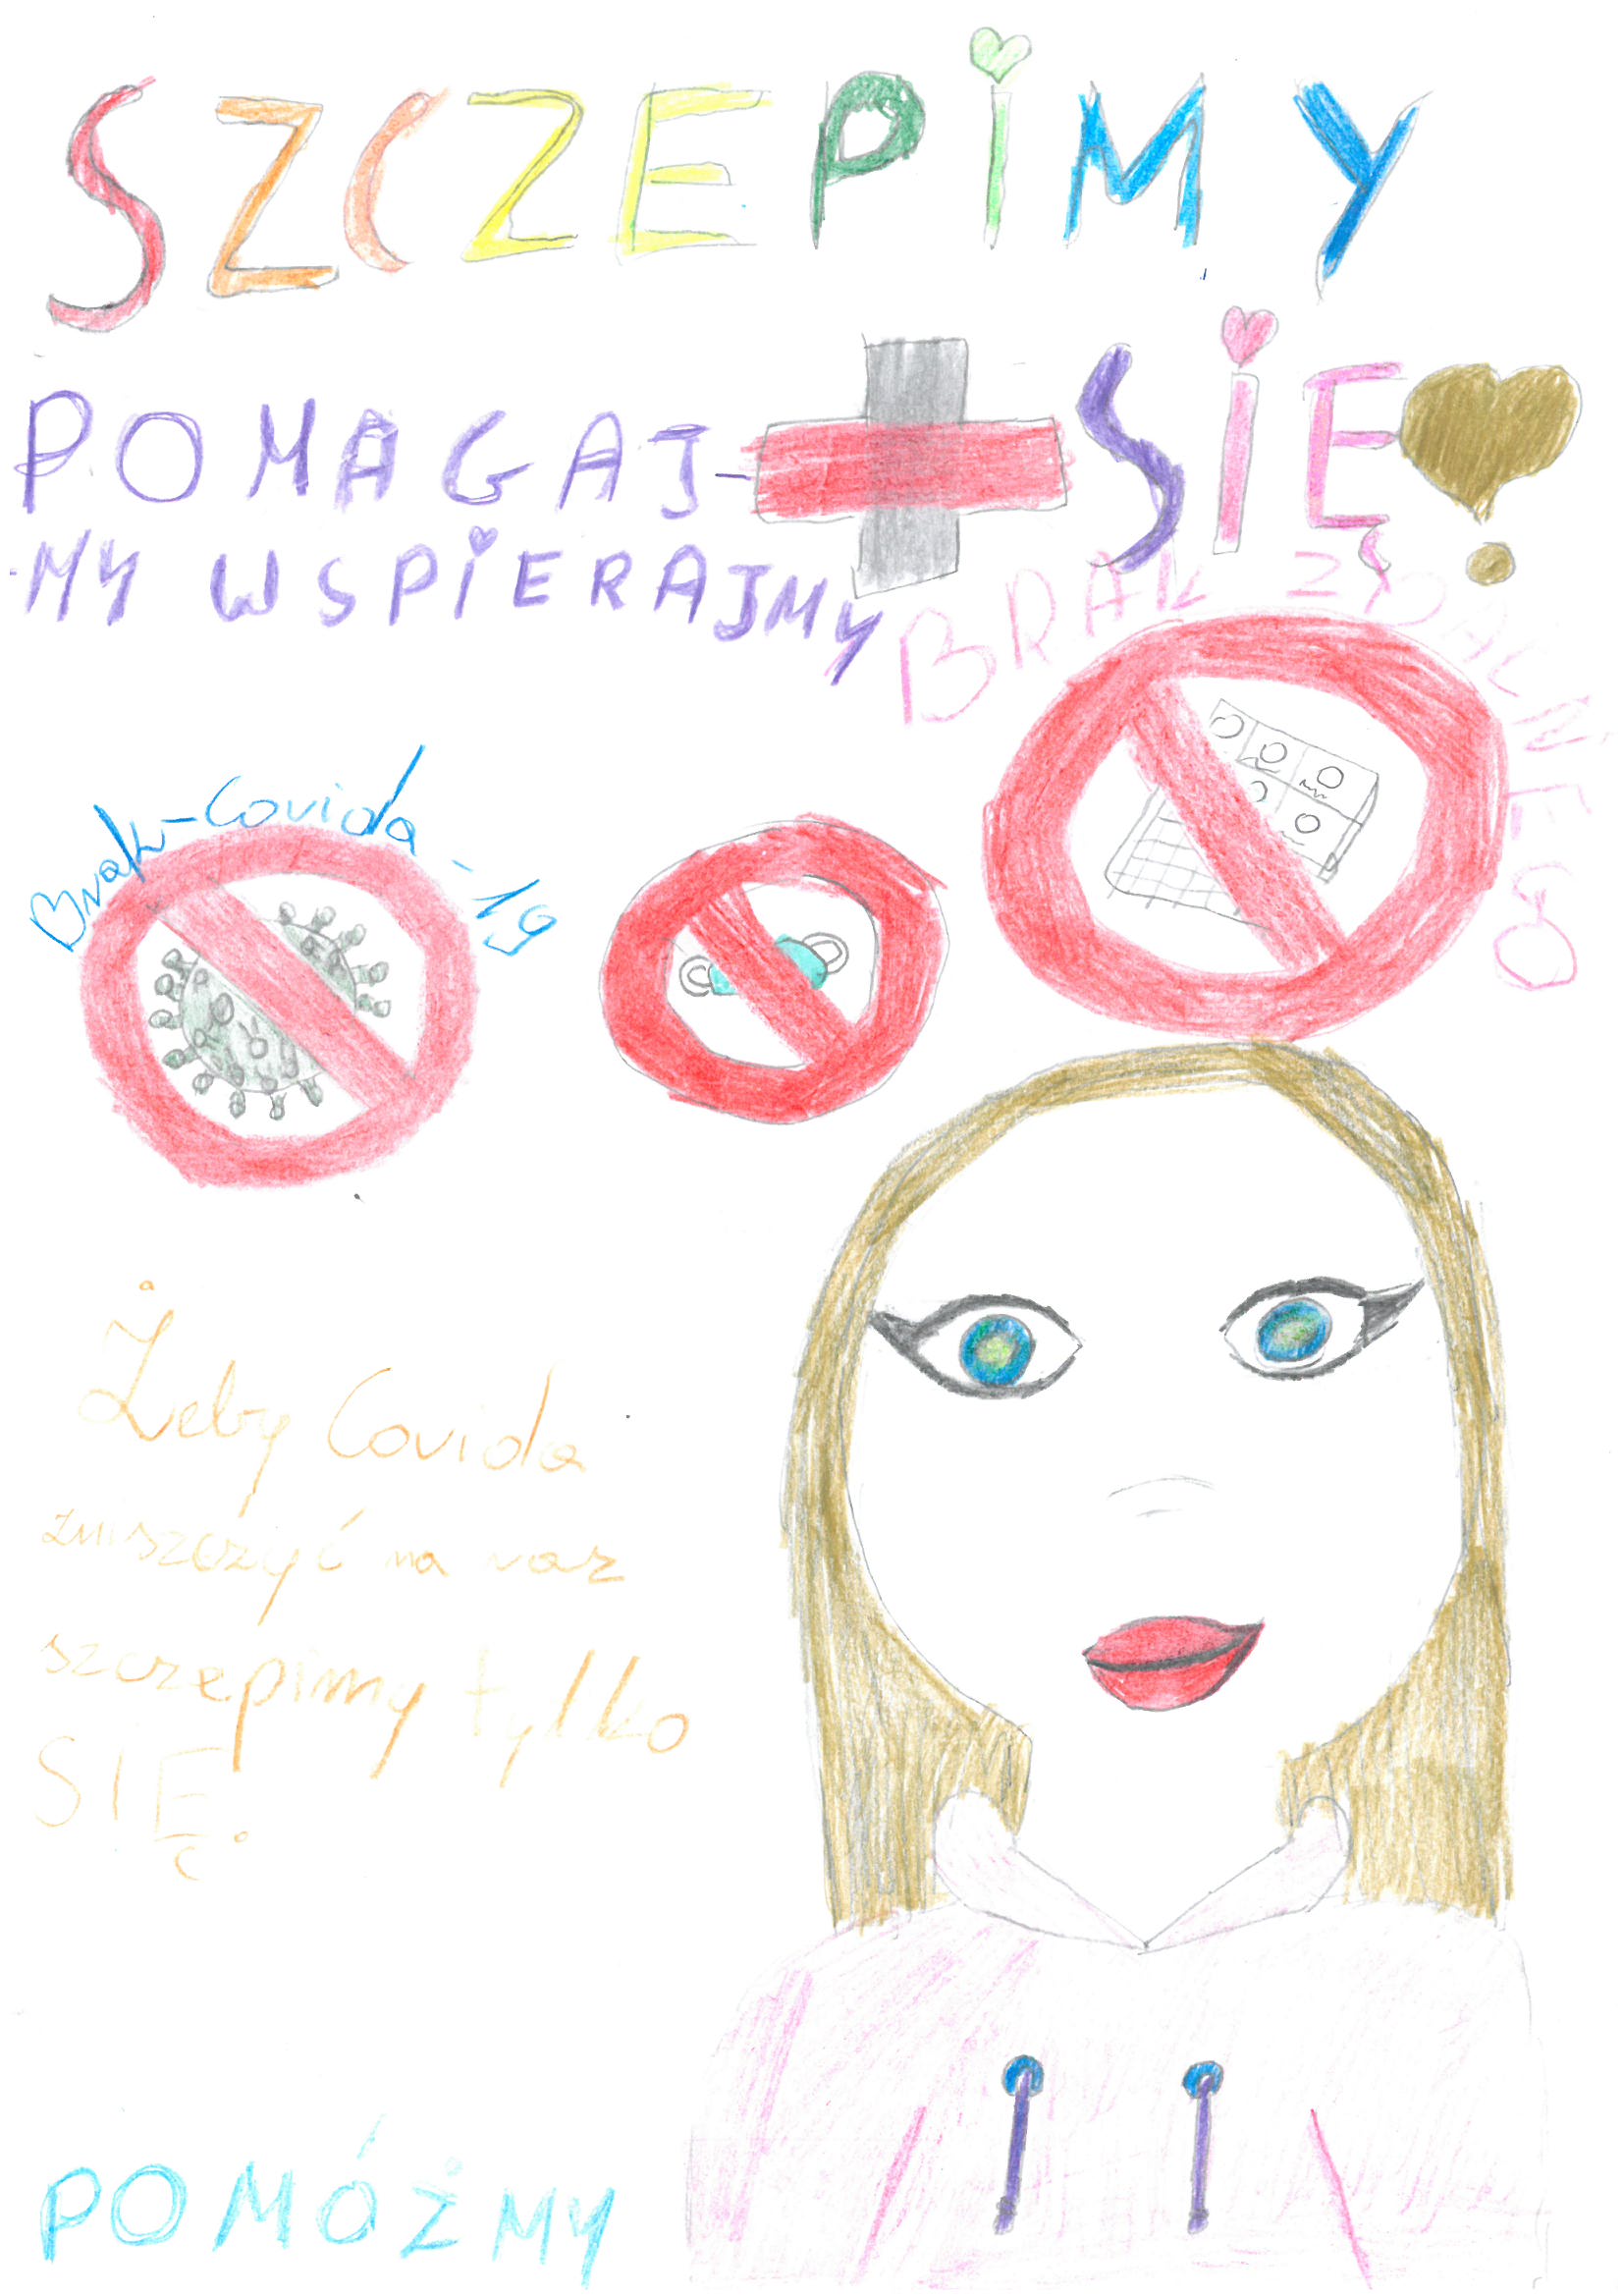 SZCZEPiMY
SiĘ!
POMAGAJ-
-MY WSPiERAJMY
BRAK ZDALNEGO
Brak-Covida-19
Żeby Covida
zniszczyć na raz
szczepimy tylko
SIĘ.
POMÓŻMY